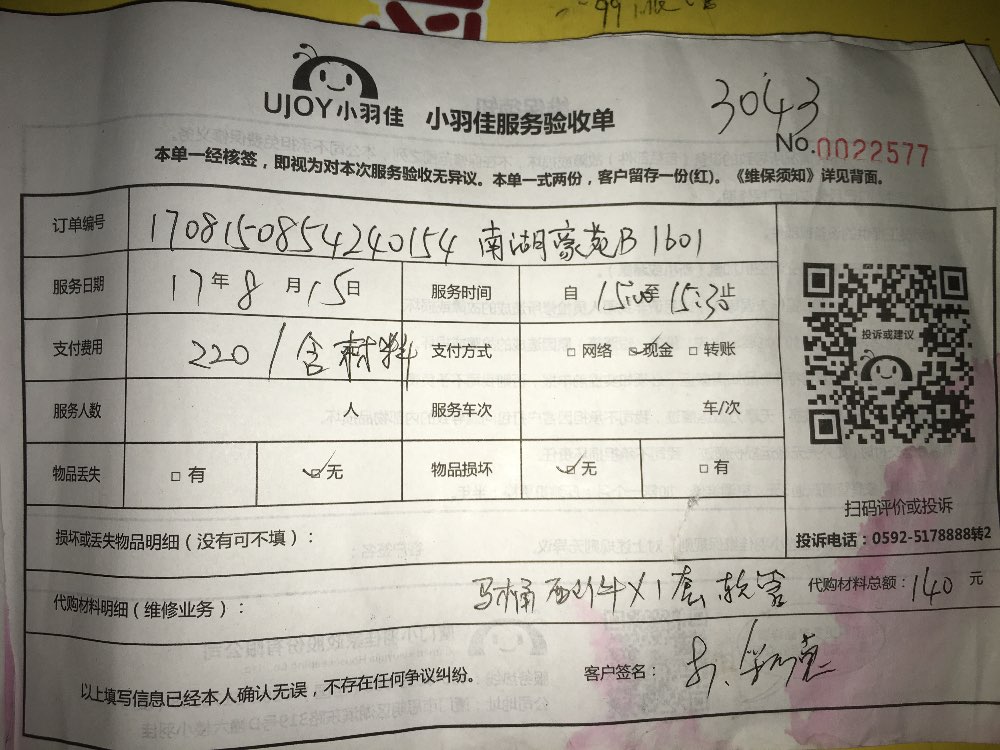 UJOY小羽佳 小羽佳服务验收单
3043
No.0022577
本单一经核签，即视为对本次服务验收无异议。本单一式两份，客户留存一份(红)。《维保须知》详见背面。
订单编号 170815-0854240154 南湖豪苑B 1601
服务日期 17年8月15日 服务时间 自15:00至15:30止
支付费用 220/含材料 支付方式 □网络 ☑现金 □转账
服务人数 人 服务车次 车/次
物品丢失 □有 ☑无 物品损坏 ☑无 □有
投诉或建议
扫码评价或投诉
投诉电话：0592-5178888转2
损坏或丢失物品明细（没有可不填）：
代购材料明细（维修业务）： 马桶配件X1套 软管 代购材料总额：140元
以上填写信息已经本人确认无误，不存在任何争议纠纷。 客户签名：